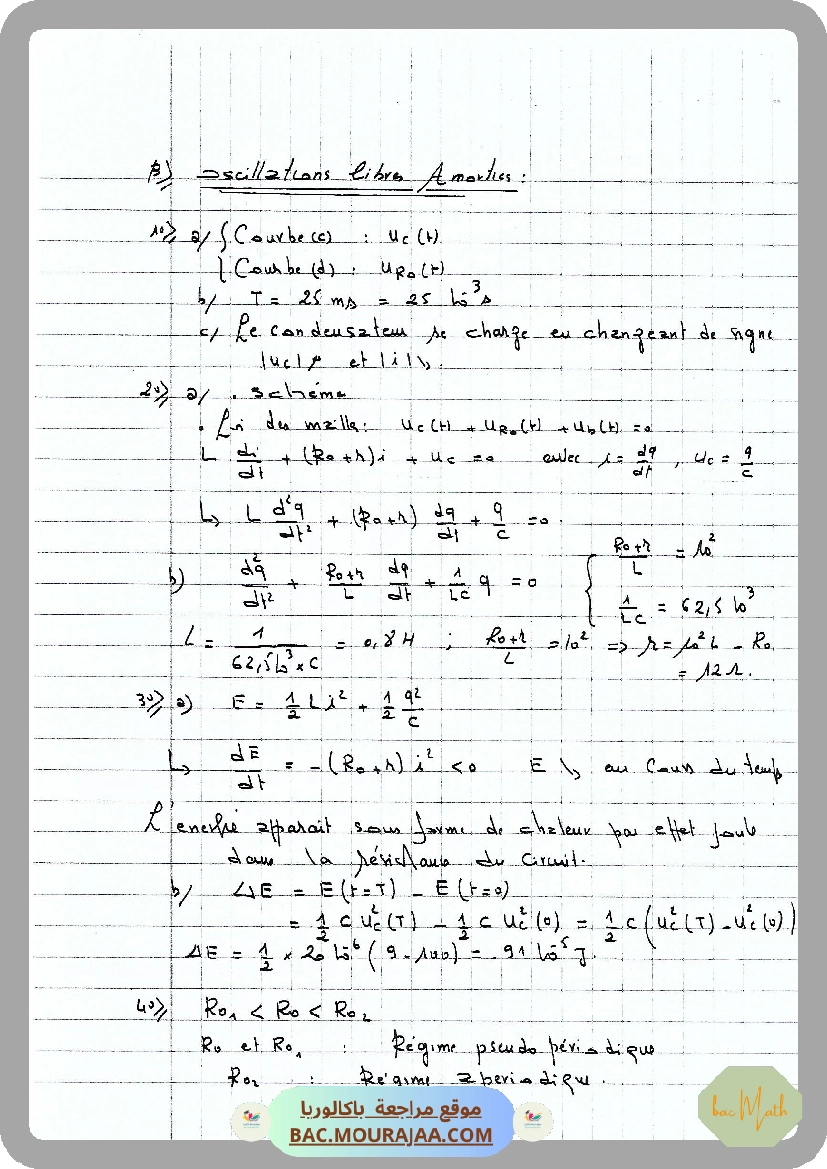 B) Oscillations libres Amorties :
1o) a/ { Courbe (c) : uc(t)
{ Courbe (d) : uR0(t)
b/ T = 25 ms = 25 10^-3 s
c/ Le condensateur se charge en changeant de signe
|uc| ↗ et |i| ↘.
2o) a/ . schéma
. Loi des mailles : uc(t) + uR0(t) + ub(t) = 0
L di/dt + (R0+r)i + uc = 0 avec i = dq/dt , uc = q/c
↳ L d²q/dt² + (R0+r) dq/dt + q/c = 0.
b) d²q/dt² + (R0+r)/L dq/dt + 1/LC q = 0 { (R0+r)/L = 10²
{ 1/LC = 62,5 10³
L = 1/(62,5 10³ × C) = 0,8 H ; (R0+r)/L = 10² => r = 10² L - R0
= 12 Ω.
3o) a) E = 1/2 L i² + 1/2 q²/c
↳ dE/dt = -(R0+r) i² < 0 E ↘ au cours du temps
L'energie apparait sous forme de chaleur par effet joule
dans la résistance du circuit.
b/ ΔE = E(t=T) - E(t=0)
= 1/2 C uc²(T) - 1/2 C uc²(0) = 1/2 C (uc²(T) - uc²(0))
ΔE = 1/2 × 20 10^-6 (9 - 100) = - 91 10^-5 J.
4o) R01 < R0 < R02
R0 et R01 : Régime pseudo périodique
R02 : Régime apériodique.
موقع مراجعة باكالوريا
BAC.MOURAJAA.COM
bac Math